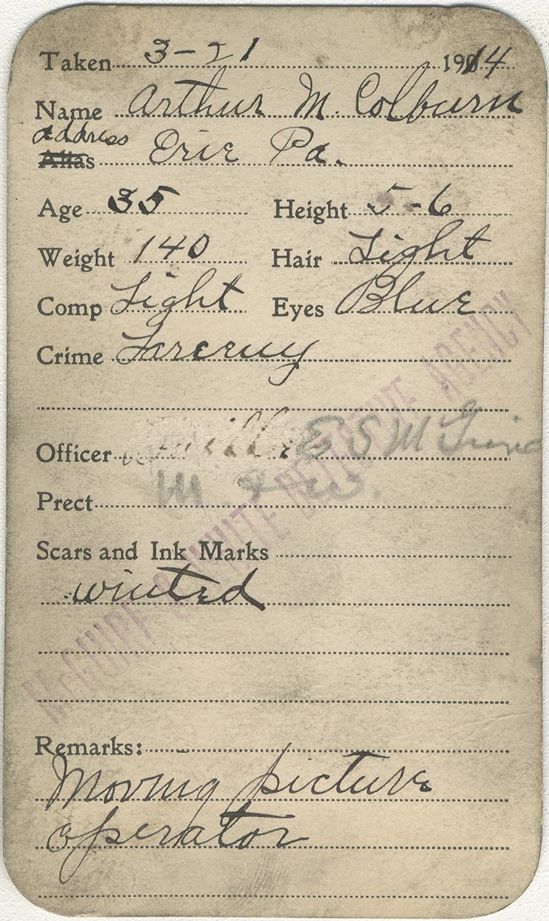 Taken 3-21 1914
Name Arthur M. Colburn
address
Alias Erie Pa.
Age 35 Height 5-6
Weight 140 Hair Light
Comp Light Eyes Blue
Crime Larceny
Officer E S M
Prect
Scars and Ink Marks
Remarks:
Moving picture
operator
McGUIRE & WHITE DETECTIVE AGENCY